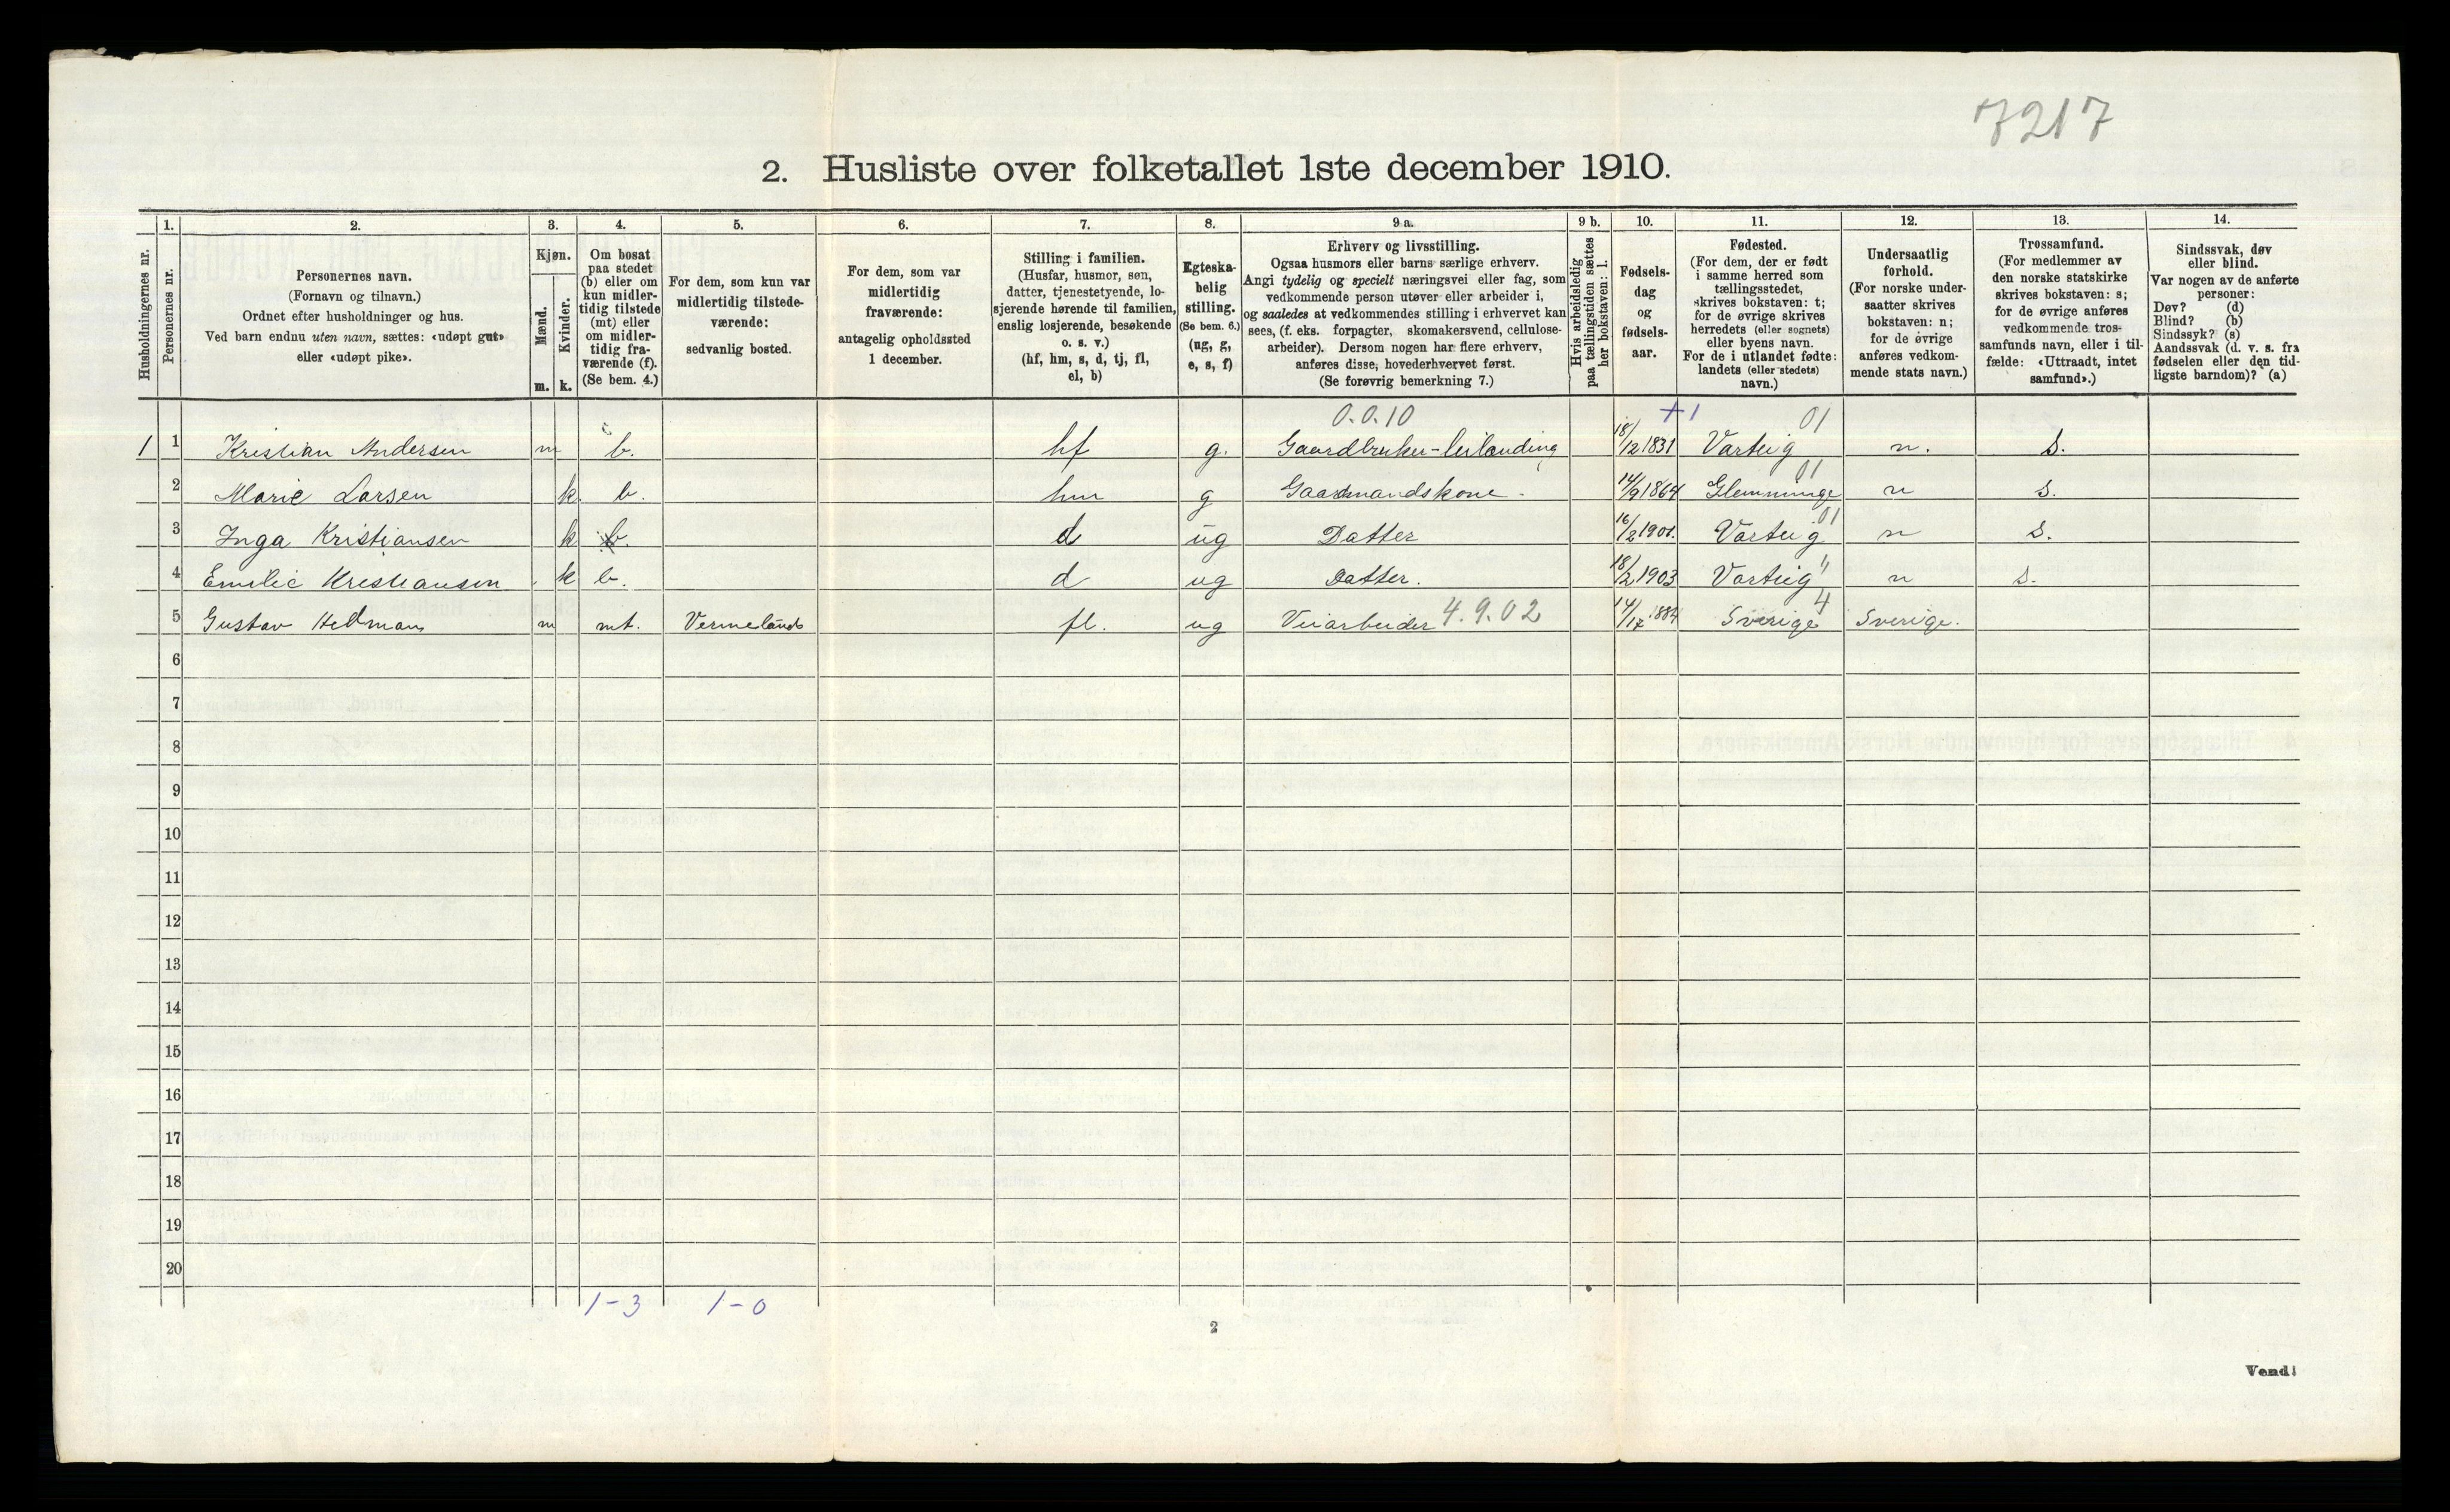 7217
2. Husliste over folketallet 1ste december 1910.
Husholdningernes nr.
1.
Personernes nr.
2.
Personernes navn.
(Fornavn og tilnavn.)
Ordnet efter husholdninger og hus.
Ved barn endnu uten navn, sættes: «udøpt gut»
eller «udøpt pike».
3.
Kjøn.
Mænd.
m.
Kvinder.
k.
4.
Om bosat
paa stedet
(b) eller om
kun midler-
tidig tilstede
(mt) eller
om midler-
tidig fra-
værende (f).
(Se bem. 4.)
5.
For dem, som kun var
midlertidig tilstede-
værende:
sedvanlig bosted.
6.
For dem, som var
midlertidig
fraværende:
antagelig opholdssted
1 december.
7.
Stilling i familien.
(Husfar, husmor, søn,
datter, tjenestetyende, lo-
sjerende hørende til familien,
enslig losjerende, besøkende
o. s. v.)
(hf, hm, s, d, tj, fl,
el, b)
8.
Egteska-
belig
stilling.
(Se bem. 6.)
(ug, g,
e, s, f)
9 a.
Erhverv og livsstilling.
Ogsaa husmors eller barns særlige erhverv.
Angi tydelig og specielt næringsvei eller fag, som
vedkommende person utøver eller arbeider i,
og saaledes at vedkommendes stilling i erhvervet kan
sees, (f. eks. forpagter, skomakersvend, cellulose-
arbeider). Dersom nogen har flere erhverv,
anføres disse, hovederhvervet først.
(Se forøvrig bemerkning 7.)
9 b.
Hvis arbeidsledig
paa tællingstiden sættes
her bokstaven: l.
10.
Fødsels-
dag
og
fødsels-
aar.
11.
Fødested.
(For dem, der er født
i samme herred som
tællingsstedet,
skrives bokstaven: t;
for de øvrige skrives
herredets (eller sognets)
eller byens navn.
For de i utlandet fødte:
landets (eller stedets)
navn.)
12.
Undersaatlig
forhold.
(For norske under-
saatter skrives
bokstaven: n;
for de øvrige
anføres vedkom-
mende stats navn.)
13.
Trossamfund.
(For medlemmer av
den norske statskirke
skrives bokstaven: s;
for de øvrige anføres
vedkommende tros-
samfunds navn, eller i til-
fælde: «Uttraadt, intet
samfund».)
14.
Sindssvak, døv
eller blind.
Var nogen av de anførte
personer:
Døv? (d)
Blind? (b)
Sindssyk? (s)
Aandssvak (d. v. s. fra
fødselen eller den tid-
ligste barndom)? (a)
0.0.10 +1 01
1 1 Kristian Andersen m b. hf g. Gaardbruker-leilænding 18/12 1831 Varteig n. s.
01
2 Marie Larsen k b. hm g Gaardmandskone - 14/9 1864 Glemminge n s.
01
3 Inga Kristiansen k b. d ug Datter 16/2 1901. Varteig n s.
4 Emilie Kristiansen k b. d ug Datter. 18/2 1903 Varteig " n s.
5 Gustav Hedman m mt. Vermeland fl. ug Veiarbeider 4.9.02 1884 Sverige 4 Sverige.
6
7
8
9
10
11
12
13
14
15
16
17
18
19
20
1-3 1-0
2
Vend!